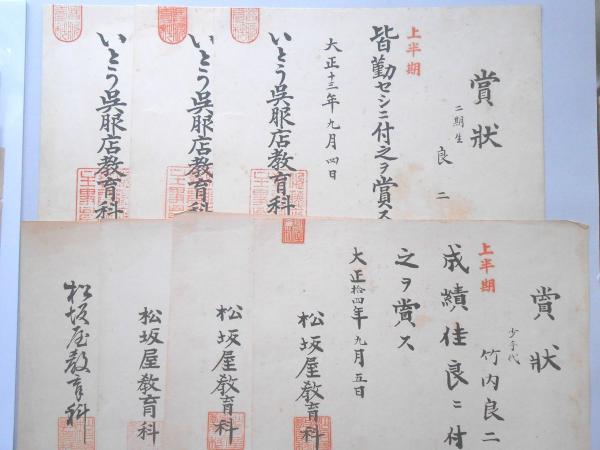 賞狀
二期生
良二
上半期
皆勤セシニ付之ヲ賞ス
大正十三年九月四日
いとう呉服店教育科
いとう呉服店教育科
いとう呉服店教育科
賞狀
少手代
竹内良二
上半期
成績佳良ニ付
之ヲ賞ス
大正拾四年九月五日
松坂屋教育科
松坂屋教育科
松坂屋教育科
松坂屋教育科